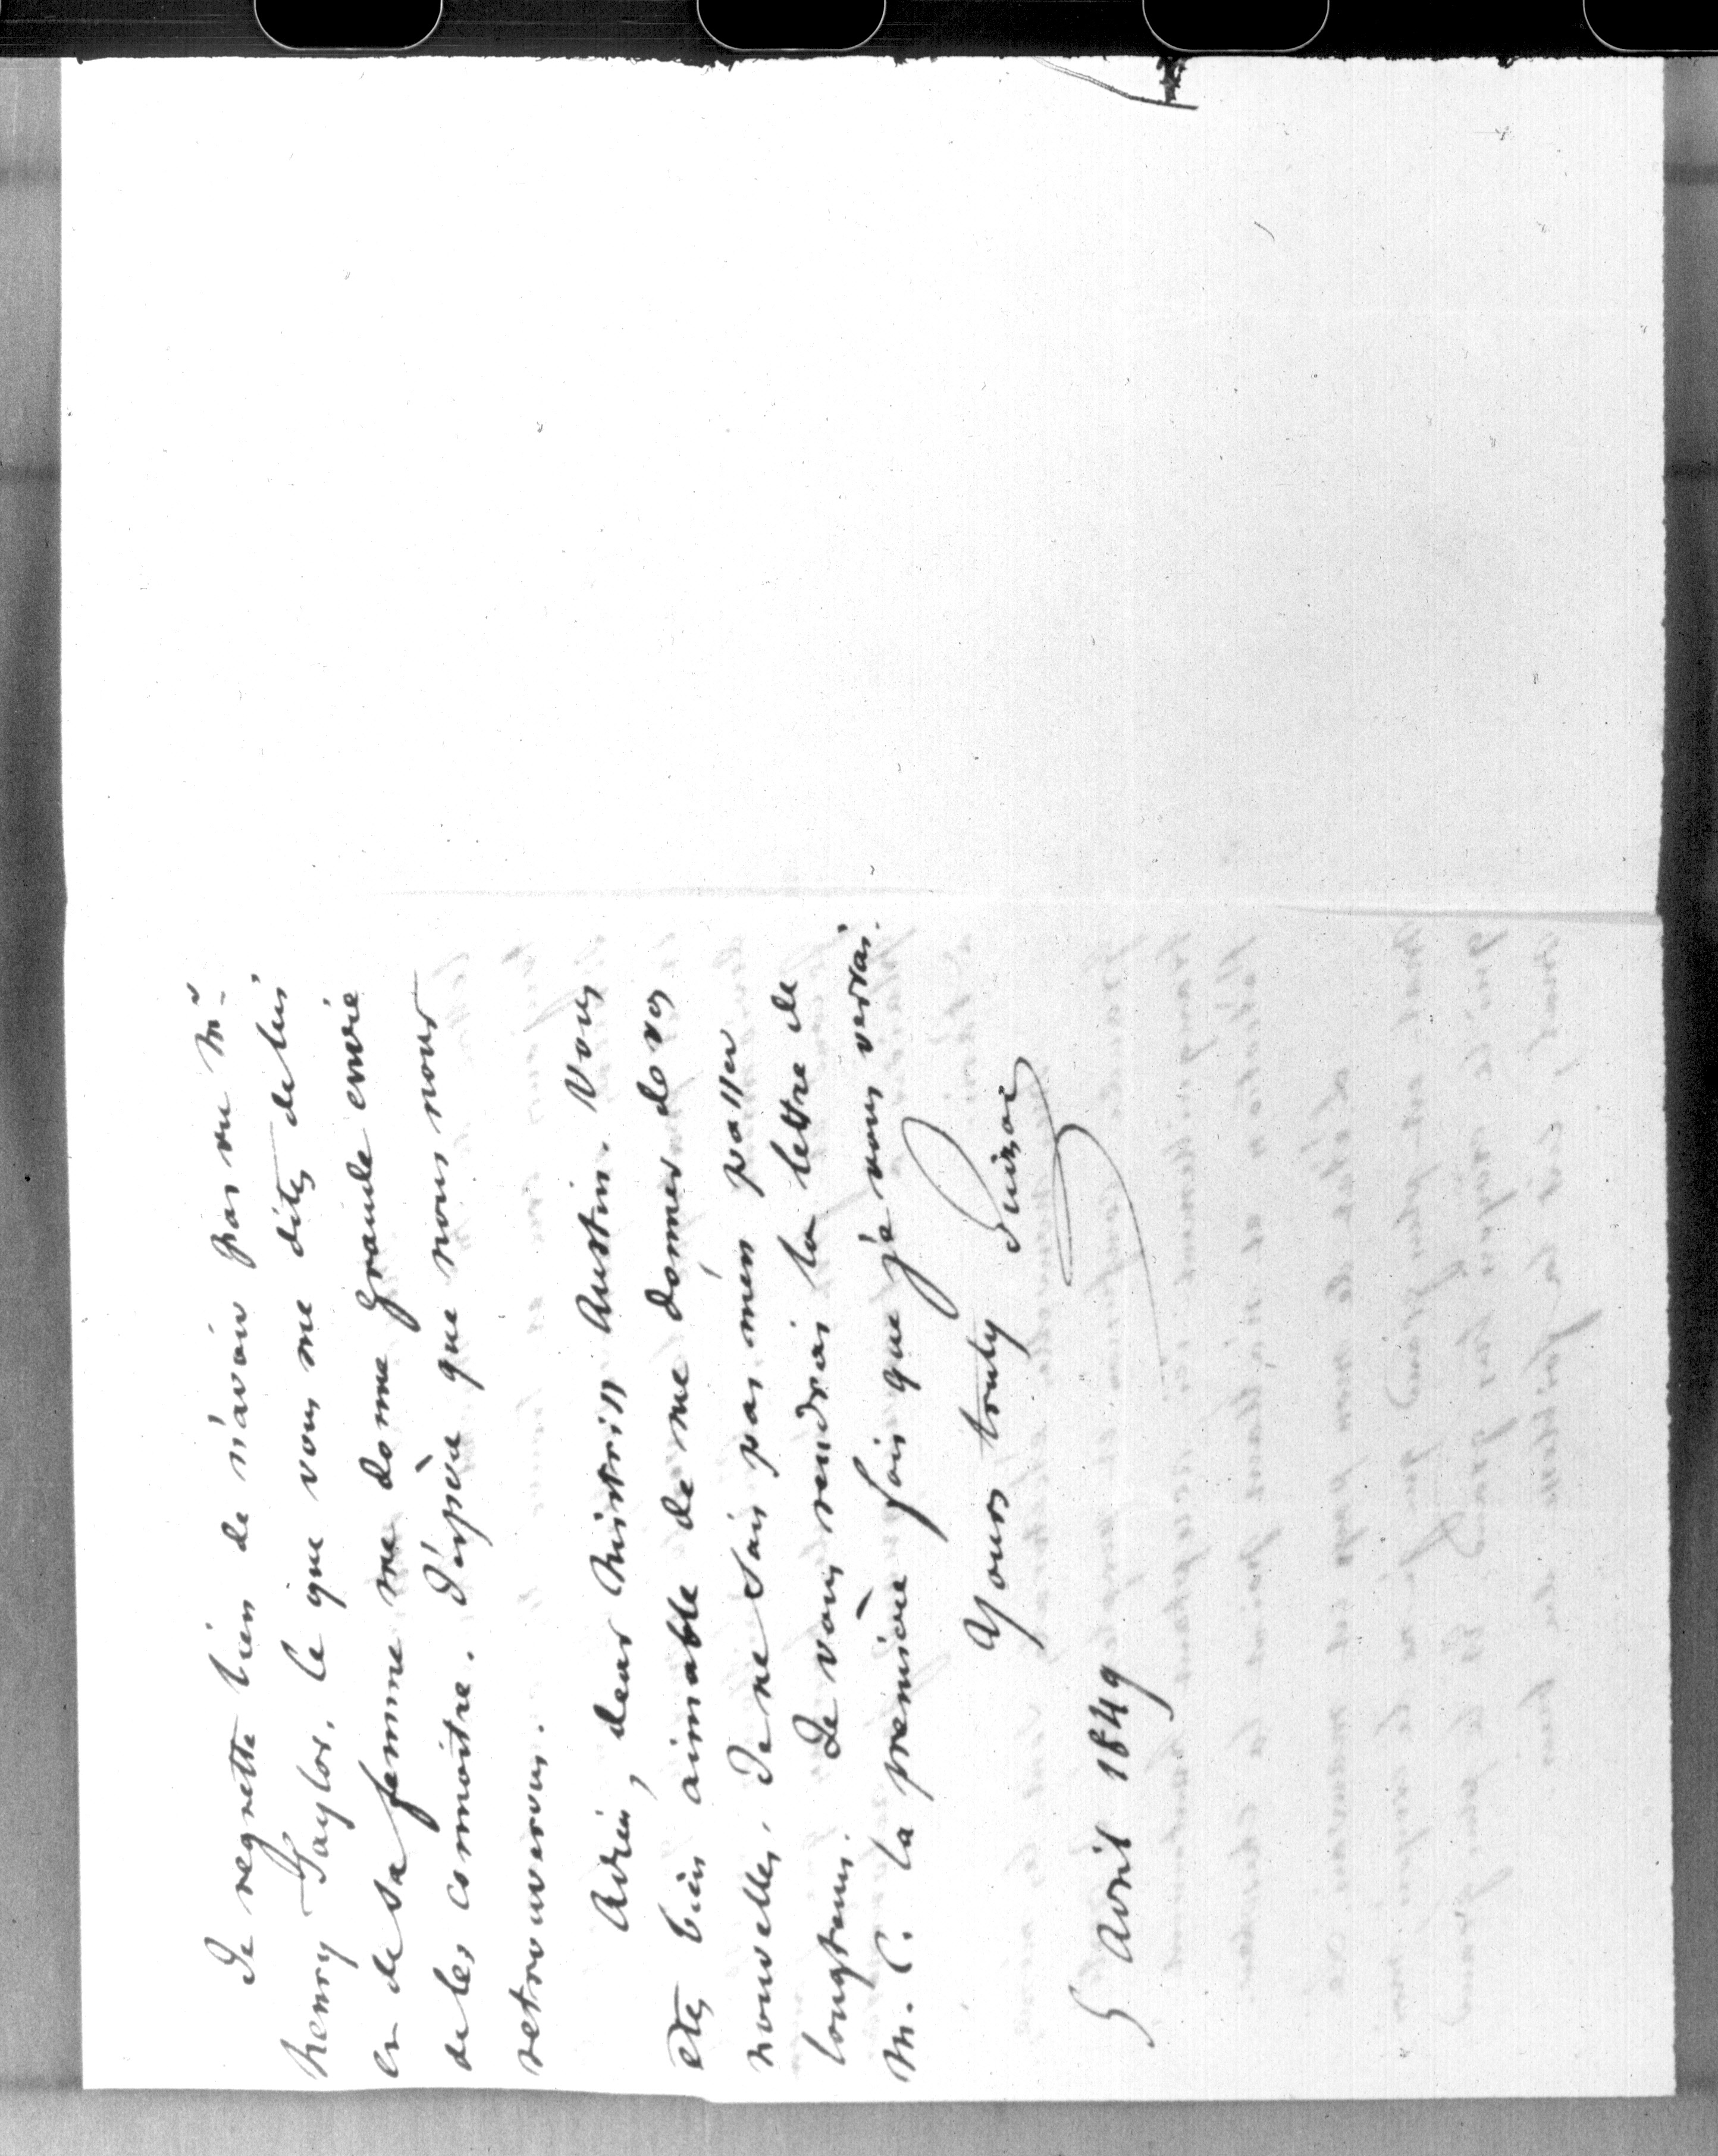 Je regrette bien de n'avoir pas vu Mr.
henry Taylor. Ce que vous me dites de lui
et de sa femme me donne grande envie
de les connoitre. J'espère que nous nous
retrouverons.
Adieu, dear Mistriss Austin. Vous
etes bien aimable de me donner de vos
nouvelles. Je ne sais pas m'en passer
longtems. Je vous rendrai la lettre de
M. C. la première fois que je vous verrai.
Yours truly Guizot
5 Avril 1849